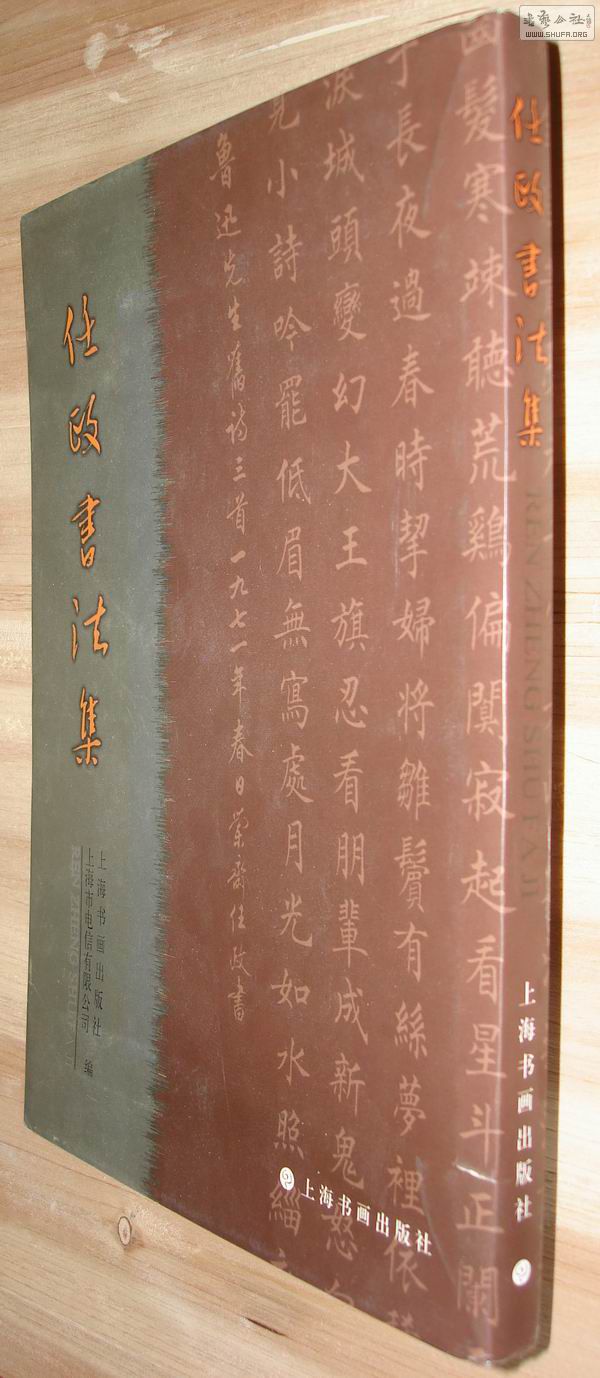 书艺公社
WWW.SHUFA.ORG
任政书法集
REN ZHENG SHU FA JI
上海书画出版社
髮寒竦聽荒鷄偏闃寂起看星斗正闌
于長夜過春時挈婦將雛鬢有絲夢裡依稀
淚城頭變幻大王旗忍看朋輩成新鬼怒向
見小詩吟罷低眉無寫處月光如水照緇
魯迅先生舊詩三首一九七一年春日蘭齋任政書
上海书画出版社
任政书法集
上海书画出版社
上海市电信有限公司
编
REN ZHENG SHU